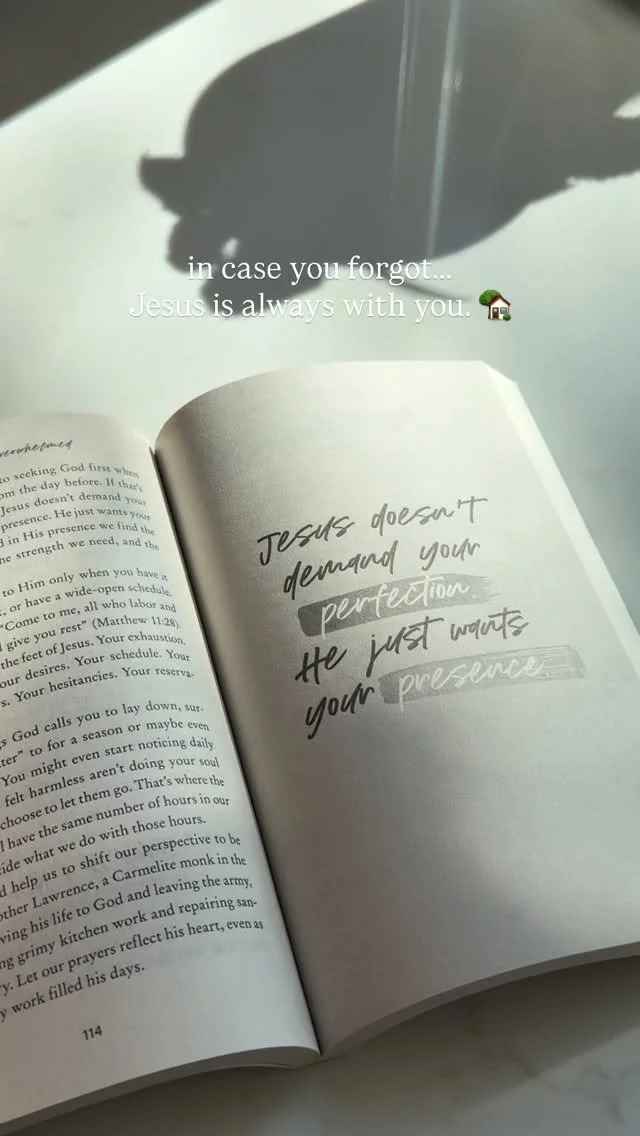 in case you forgot...
Jesus is always with you. 🏡
overwhelmed
to seeking God first when
the day before. If that's
Jesus doesn't demand your
presence. He just wants your
in His presence we find the
strength we need, and the
to Him only when you have it
, or have a wide-open schedule.
“Come to me, all who labor and
give you rest” (Matthew 11:28).
the feet of Jesus. Your exhaustion.
our desires. Your schedule. Your
s. Your hesitancies. Your reserva-
s God calls you to lay down, sur-
ter” to for a season or maybe even
You might even start noticing daily
felt harmless aren't doing your soul
choose to let them go. That's where the
have the same number of hours in our
ide what we do with those hours.
d help us to shift our perspective to be
other Lawrence, a Carmelite monk in the
ving his life to God and leaving the army,
ng grimy kitchen work and repairing san-
y. Let our prayers reflect his heart, even as
y work filled his days.
114
Jesus doesn't
demand your
perfection.
He just wants
your presence.